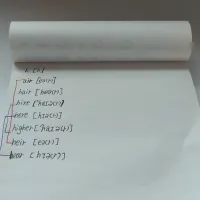 h [h]
air [eə(r)]
hair [heə(r)]
hire [ˈhaɪə(r)]
here [hɪə(r)]
higher [ˈhaɪə(r)]
heir [eə(r)]
hear [hɪə(r)]